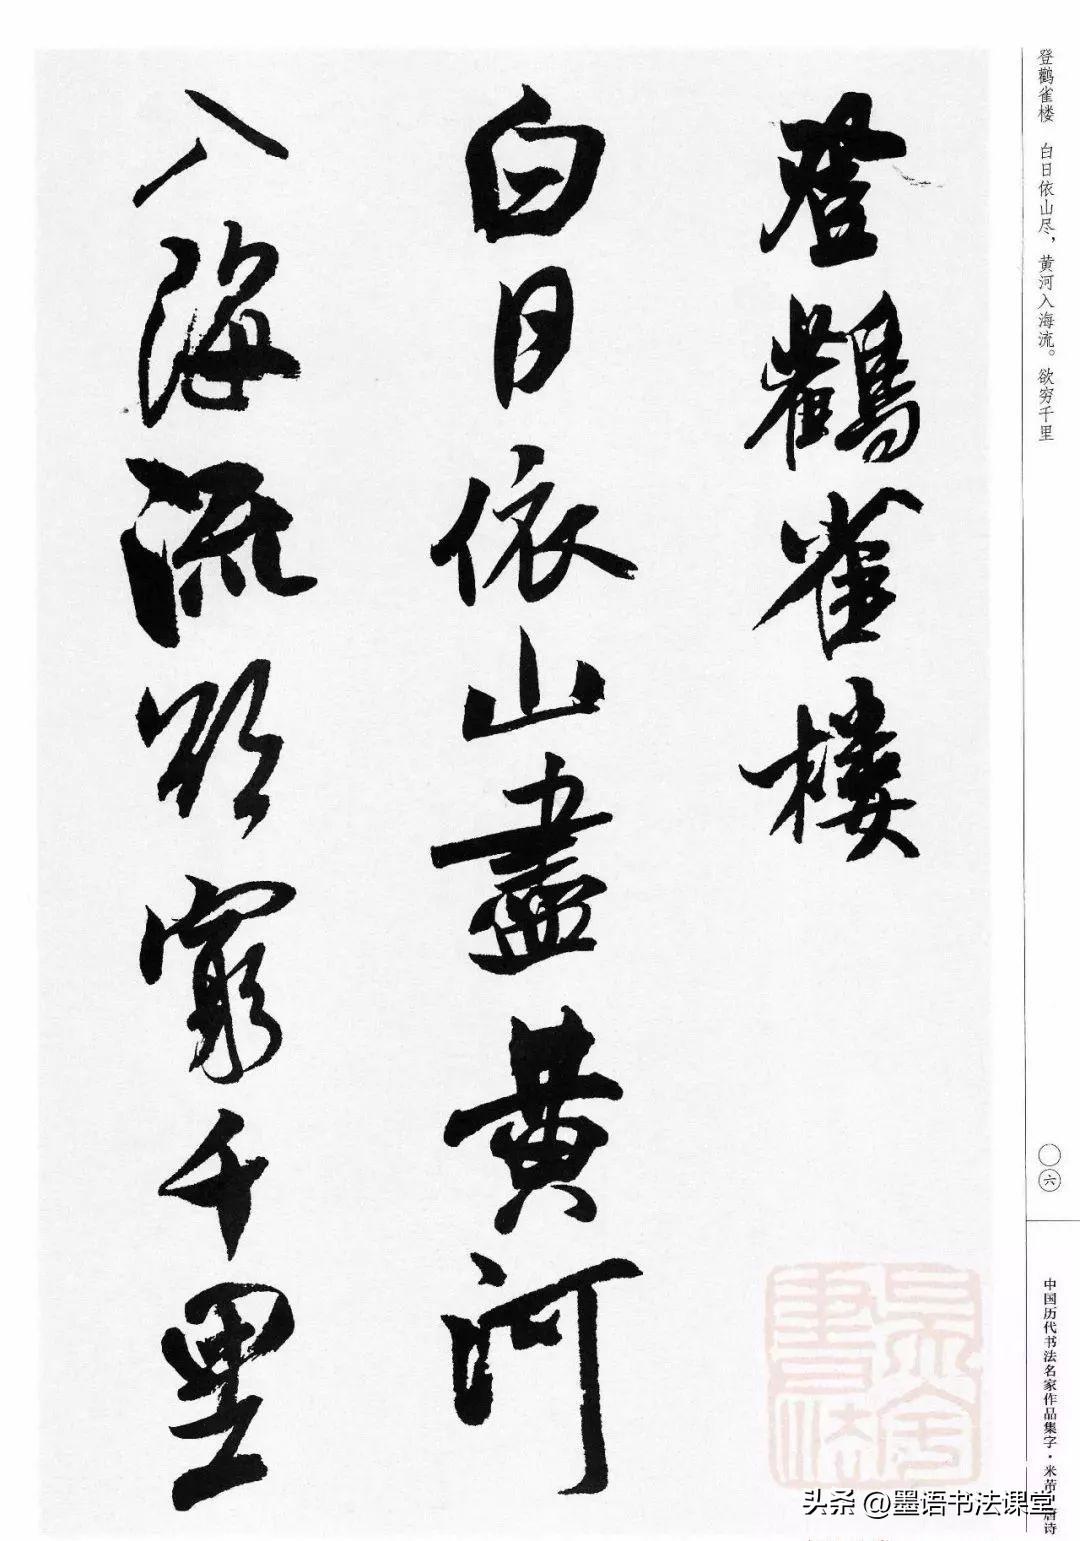 登鸛雀樓
白日依山盡黄河
入海流欲窮千里
登鹳雀楼　白日依山尽，黄河入海流。欲穷千里
〇六
中国历代书法名家作品集字·米芾 唐诗
头条 @墨语书法课堂